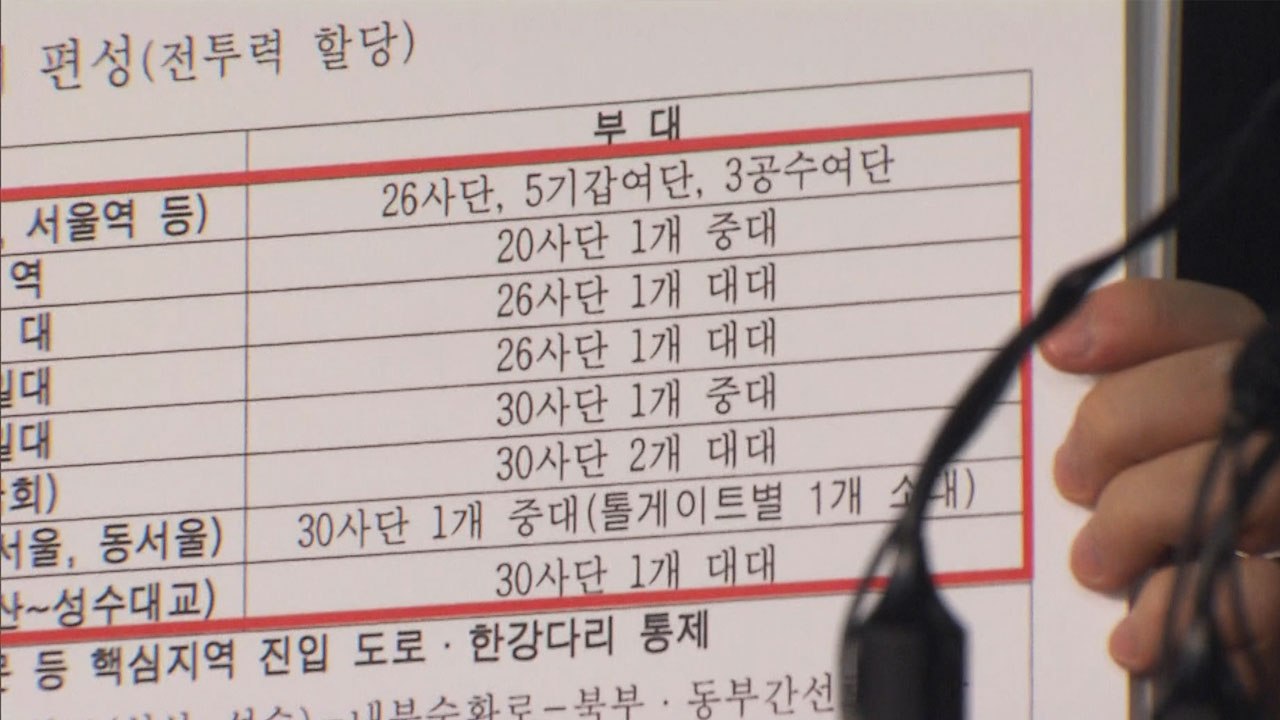 편성(전투력 할당)
부 대
서울역 등) 26사단, 5기갑여단, 3공수여단
역 20사단 1개 중대
대 26사단 1개 대대
일대 26사단 1개 대대
일대 30사단 1개 중대
회) 30사단 2개 대대
서울, 동서울) 30사단 1개 중대(톨게이트별 1개 소대)
산~성수대교) 30사단 1개 대대
등 핵심지역 진입 도로·한강다리 통제
내부순환로-북부·동부간선